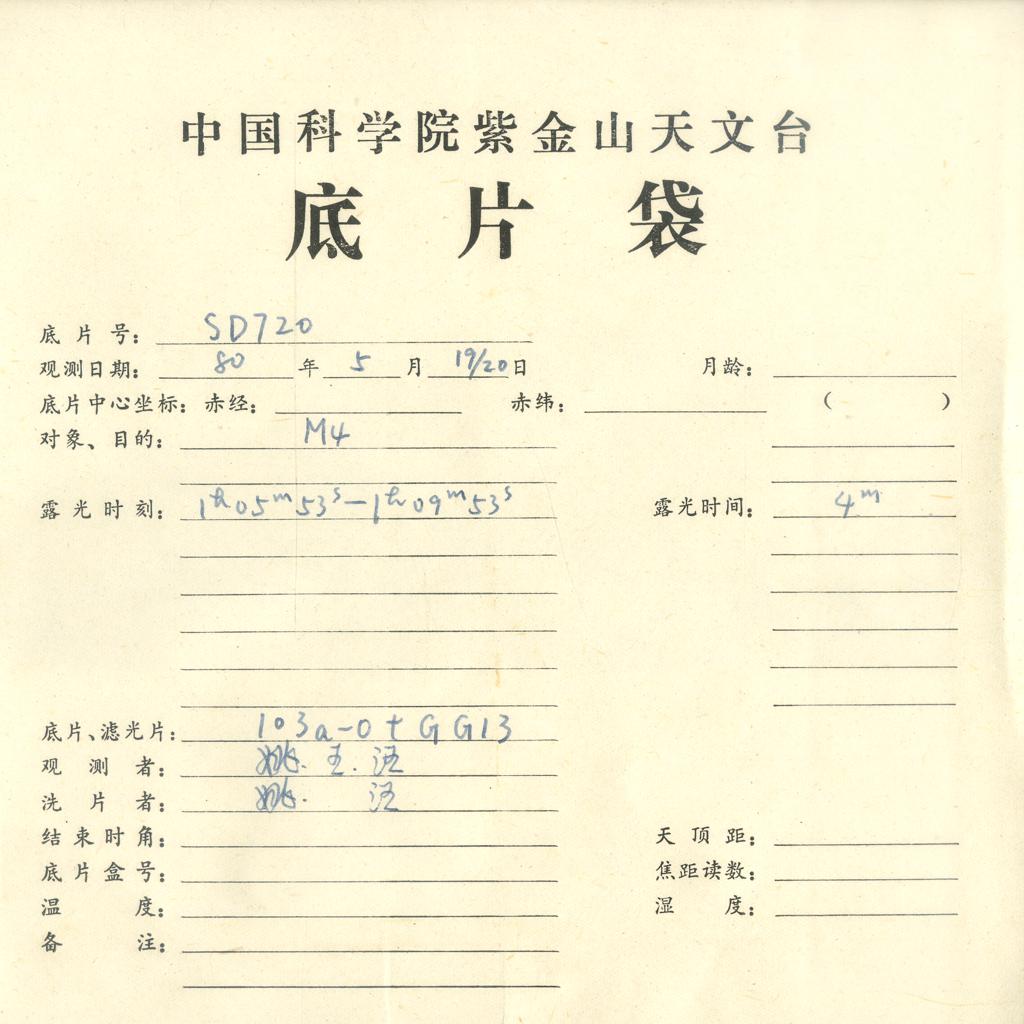 中国科学院紫金山天文台
底片袋
底片号： SD720
观测日期： 80 年 5 月 19/20 日 月龄：
底片中心坐标： 赤经： 赤纬： （ ）
对象、目的： M4
露光时刻： 1h05m53s—1h09m53s 露光时间： 4m
底片、滤光片： 103a-0 + GG13
观测者： 姚. 王. 汪
洗片者： 姚. 汪
结束时角： 天顶距：
底片盒号： 焦距读数：
温度： 湿度：
备注：